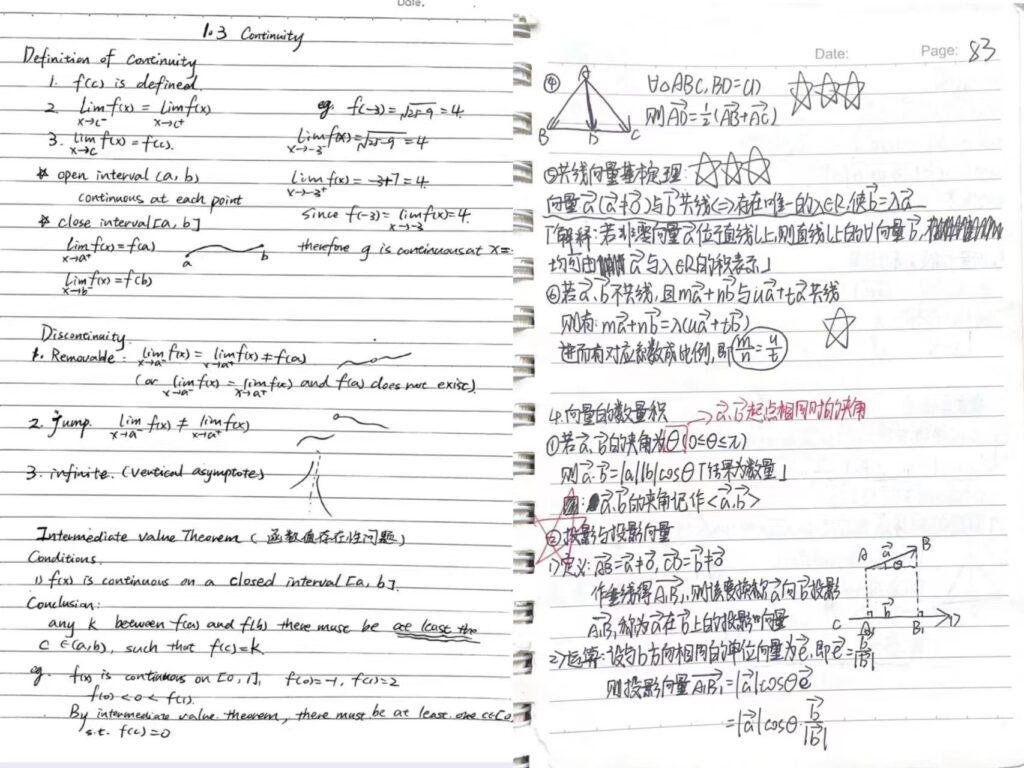 Date.
1.3 Continuity
Definition of Continuity
1. f(c) is defined.
2. lim x→c⁻ f(x) = lim x→c⁺ f(x)
3. lim x→c f(x) = f(c).
eg. f(-3) = √25-9 = 4.
lim x→-3⁻ f(x) = √25-9 = 4
lim x→-3⁺ f(x) = -3+7 = 4.
since f(-3) = lim x→-3 f(x) = 4.
therefore g is continuous at x =
☆ open interval (a, b)
continuous at each point
☆ close interval [a, b]
lim x→a⁺ f(x) = f(a)
lim x→b⁻ f(x) = f(b)
a b
Discontinuity.
1. Removable: lim x→a⁻ f(x) = lim x→a⁺ f(x) ≠ f(a)
(or lim x→a⁻ f(x) = lim x→a⁺ f(x) and f(a) does not exist)
2. jump. lim x→a⁻ f(x) ≠ lim x→a⁺ f(x)
3. infinite. (vertical asymptote)
Intermediate value Theorem (函数值存在性问题)
Conditions.
1) f(x) is continuous on a closed interval [a, b].
Conclusion:
any k between f(a) and f(b) there muse be at least the
c ∈ (a,b), such that f(c) = k.
eg. f(x) is continuous on [0, 1], f(0) = -1, f(1) = 2
f(0) < 0 < f(1).
By intermediate value theorem, there must be at least one c∈
s.t. f(c) = 0
Date: Page: 83
④ A B D C ∀△ABC, BD=
则AD→=½(AB→+AC→)
⑤共线向量基本定理:
向量a→(a→≠0→)与b→共线⇔存在唯一的λ∈R,使b→=λa→
「解释:若非零向量a→位于直线L上,则直线L上的∀向量b→,
均可由a→与λ∈R的积表示」
⑥若a→,b→不共线,且ma→+nb→与ua→+ta→共线
则有:ma→+nb→=λ(ua→+tb→)
进而有对应系数成比例,即m/n=u/t
4.向量的数量积
→a→,b→起点相同时的夹角
①若a→,b→的夹角为θ(0≤θ≤π)
则a→·b→=|a||b|cosθ「结果为数量」
a→,b→的夹角记作<a→,b→>
②投影与投影向量
1)定义:AB→=a→≠0→,CD→=b→≠0→
作垂线得A₁B₁→,则该变换称a→向b→投影
A₁B₁→称为a→在b→上的投影向量
A a→ B θ
C A₁ b→ B₁ D
2)运算:设与b方向相同的单位向量为e→,即e→=b→/|b→|
则投影向量A₁B₁→=|a→|cosθe→
=|a→|cosθ·b→/|b→|